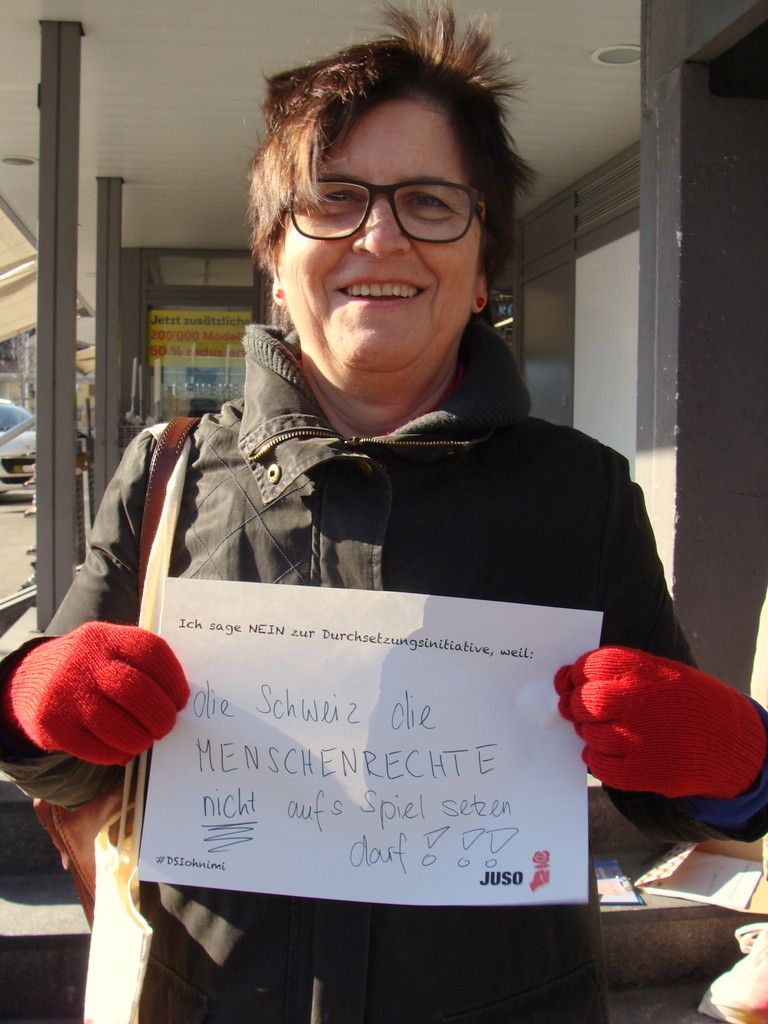 Jetzt zusätzliche
200'000 Model
50 % reduzier
Ich sage NEIN zur Durchsetzungsinitiative, weil:
die Schweiz die
MENSCHENRECHTE
nicht aufs Spiel setzen
darf !!!
#DSIohnimi
JUSO